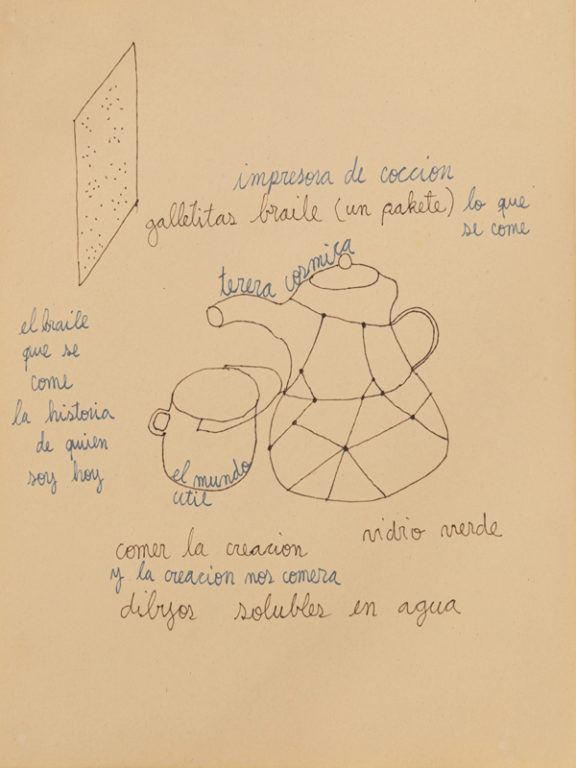 impresora de coccion
galletitas braile (un pakete) lo que
se come
terera cosmica
el braile
que se
come
la historia
de quien
soy hoy
el mundo
util
vidrio verde
comer la creacion
y la creacion nos comera
dibjos solubles en agua